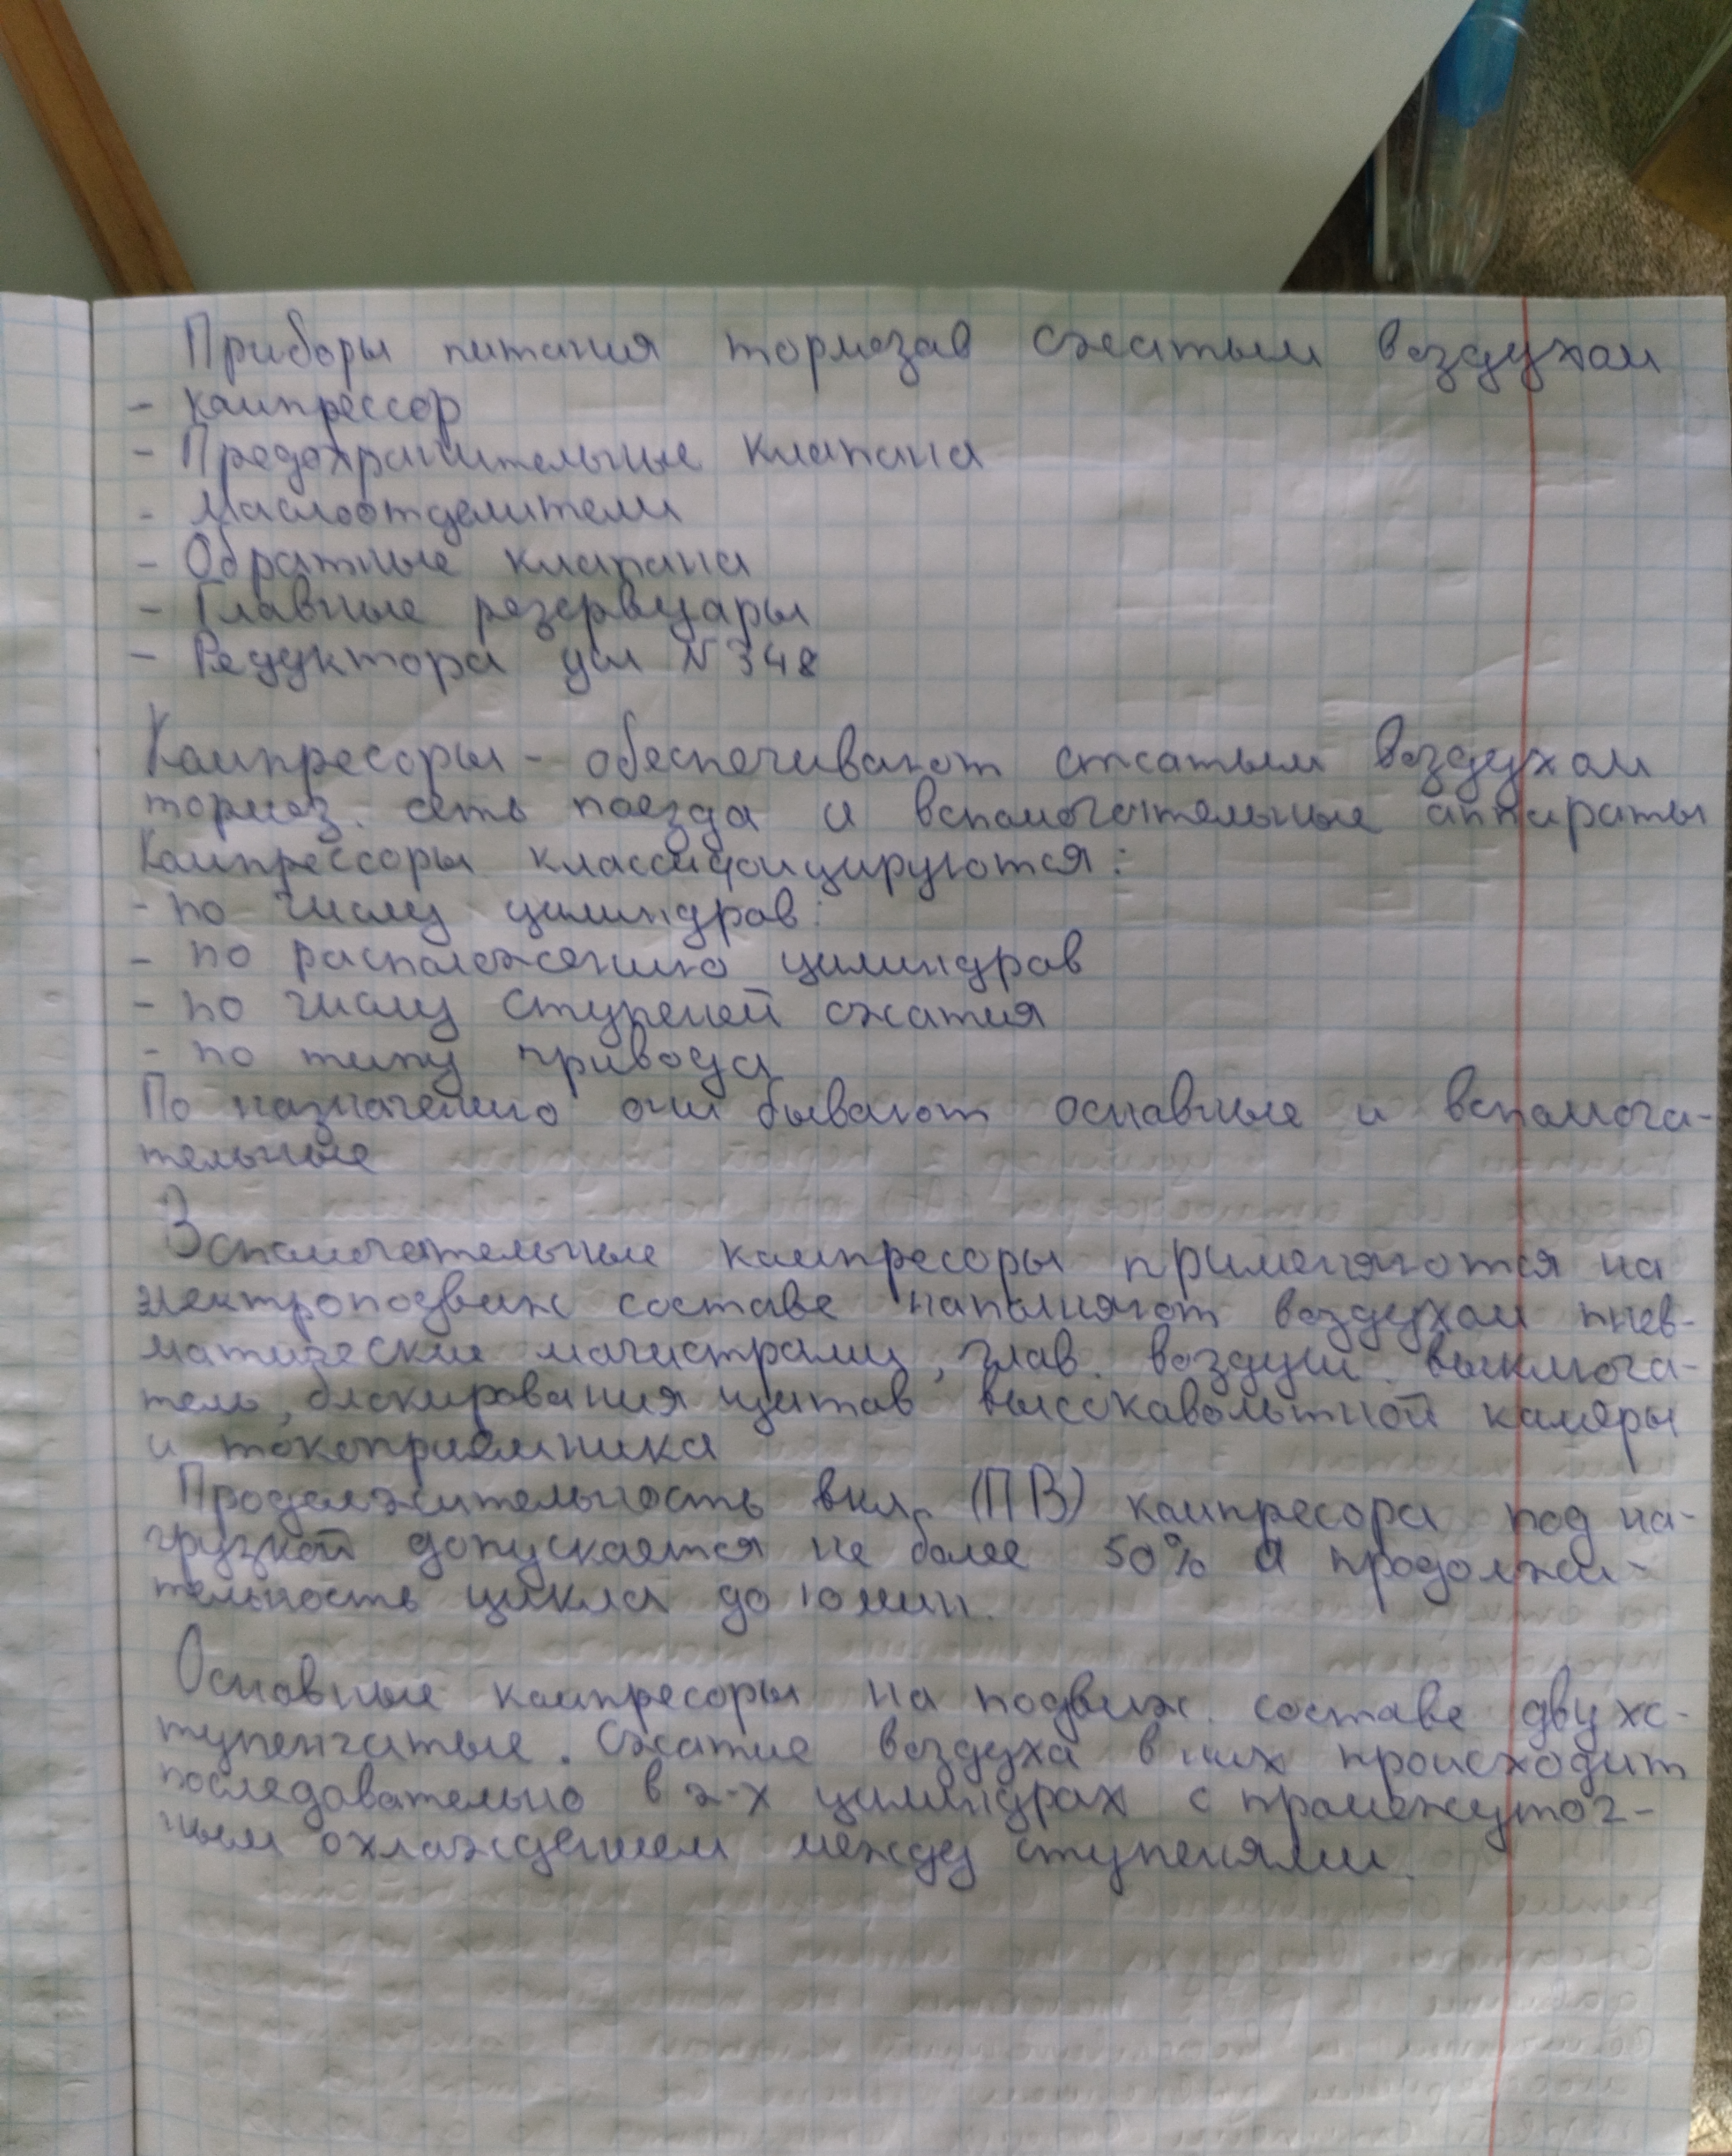 Приборы питания тормозов сжатым воздухом
- компрессор
- Предохранительные клапана
- Маслоотделители
- Обратные клапана
- Главные резервуары
- Редуктора усл №348
Компресоры - обеспечивают сжатым воздухом
тормоз. сеть поезда и вспомогательные аппараты
Компрессоры классифицируются:
- по числу цилиндров:
- по расположению цилиндров
- по числу ступеней сжатия
- по типу привода
По назначению они бывают основные и вспомога-
тельные
Вспомогательные компресоры применяются на
электроподвиж составе наполняют воздухом пнев-
матические магистрали, глав. воздуш. выключа-
тель, блокирования щитов высоковольтной камеры
и токоприёмника
Продолжительность вкл. (ПВ) компресора под на-
грузкой допускается не более 50% а продолжи-
тельность цикла до 10 мин.
Основные компресоры на подвиж. составе двухс-
тупенчатые. Сжатие воздуха в них происходит
последовательно в 2-х цилиндрах с промежуточ-
ным охлаждением между ступенями.